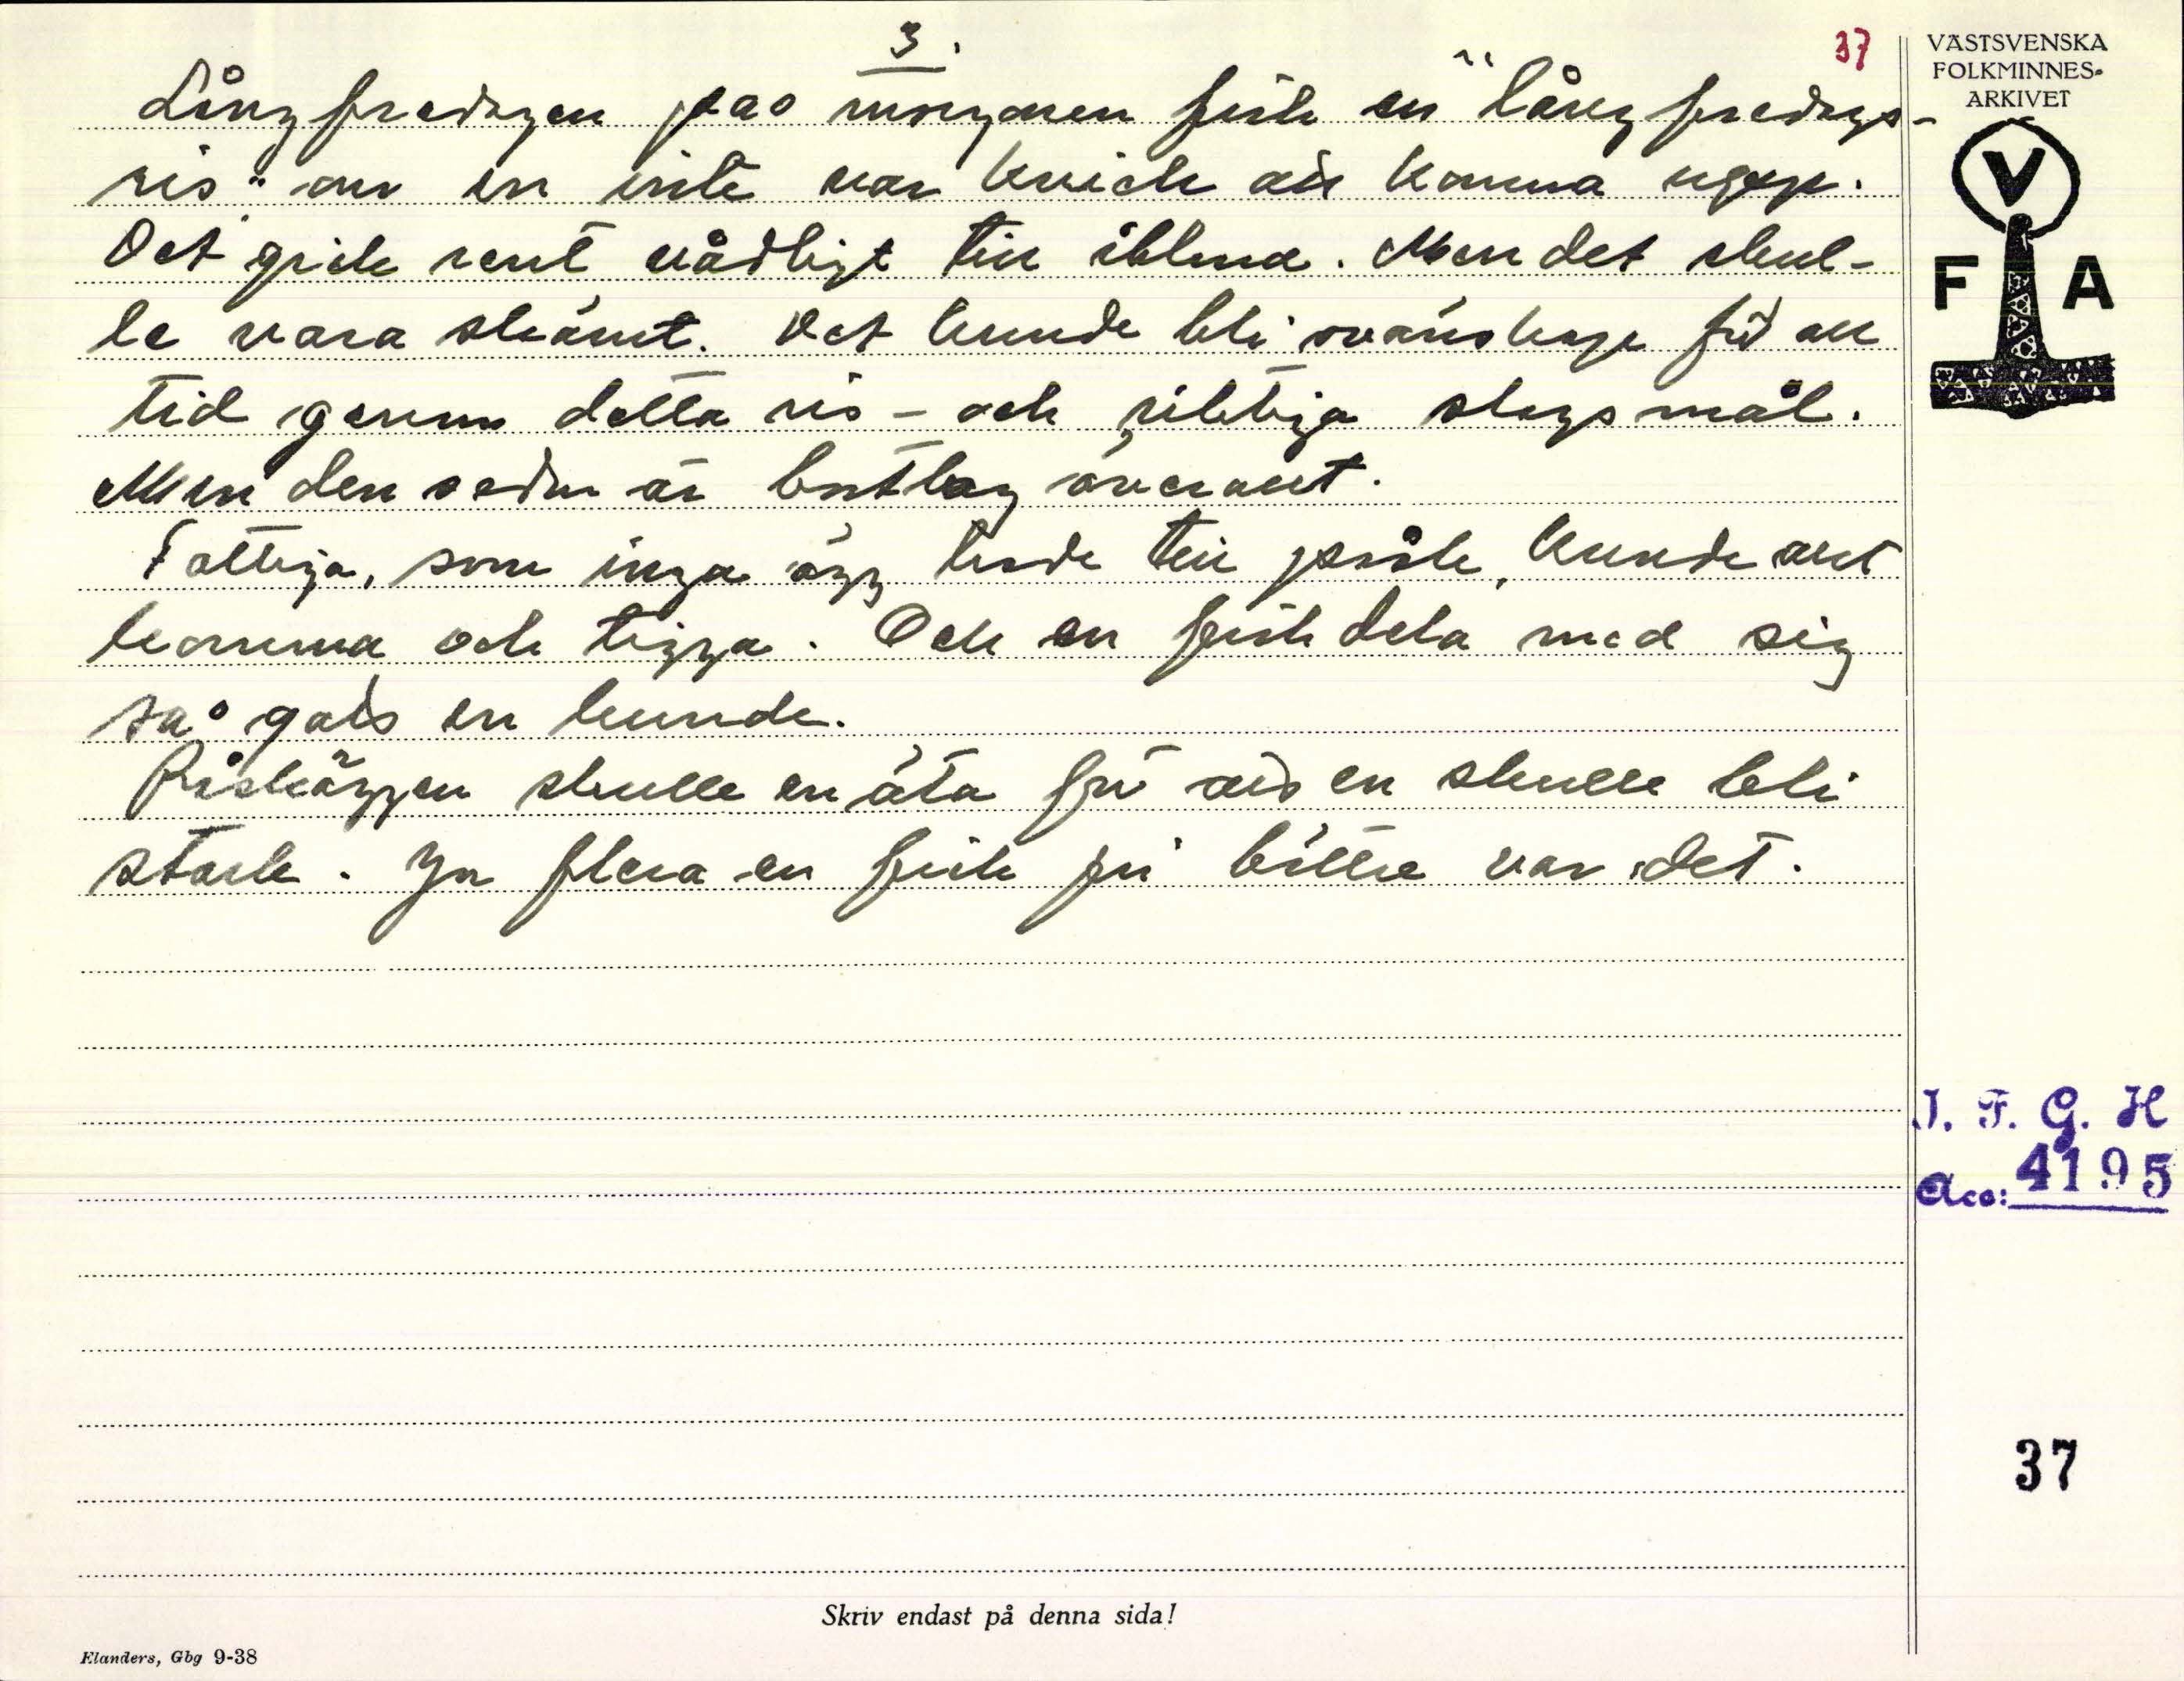 3.
37
Långfredagen pao morgonen fick en "långfredags-
ris" om en inte var kvick ai komma upp.
Det gick rent vådligt till iblma. Men det skul-
le vara skämt. Det kunde bli ovänskap för all
tid genom detta ris - och riktiga slagsmål.
Men den seden är bortlagg överallt.
Fattiga, som inga ägg hade till påsk, kunde aut
komma och tigga. Och en fick dela med sig
så gods en kunde.
Påskäggen skulle en äta för ais en skulle bli
stark. Ju flera en fick ju bättre var det.
VÄSTSVENSKA
FOLKMINNES-
ARKIVET
V
F A
I. F. G. H
Acc: 4195
37
Skriv endast på denna sida!
Elanders, Gbg 9-38